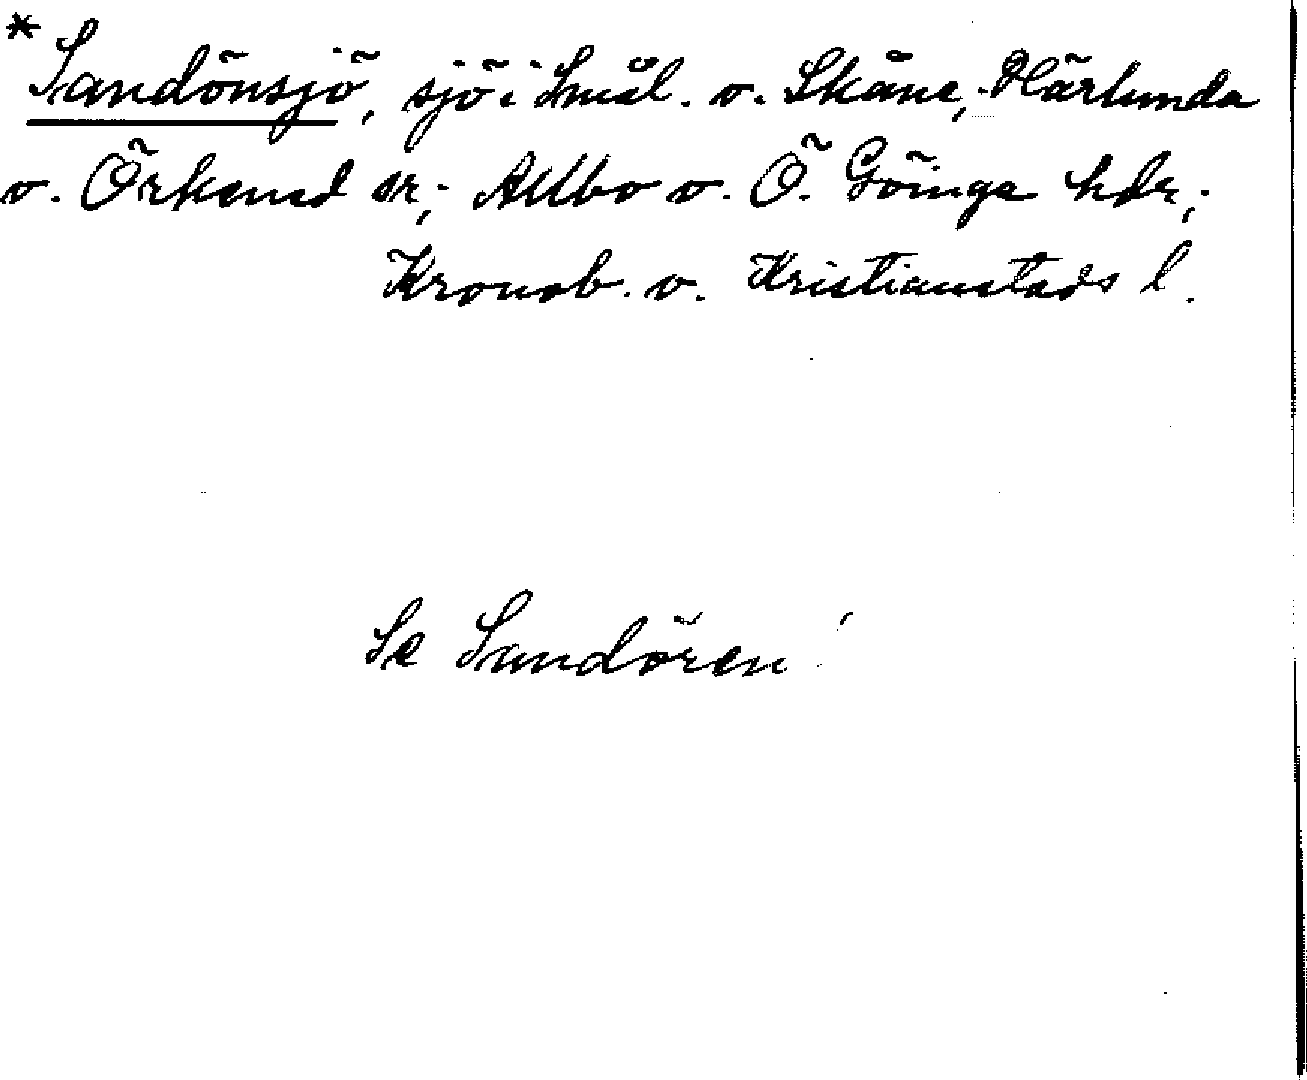 * Sandönsjö, sjö i Smål. o. Skåne; Härlunda
o. Örkened snr; Allbo o. Ö. Göinge hdr;
Kronob. o. Kristianstads l.
Se Sandören!